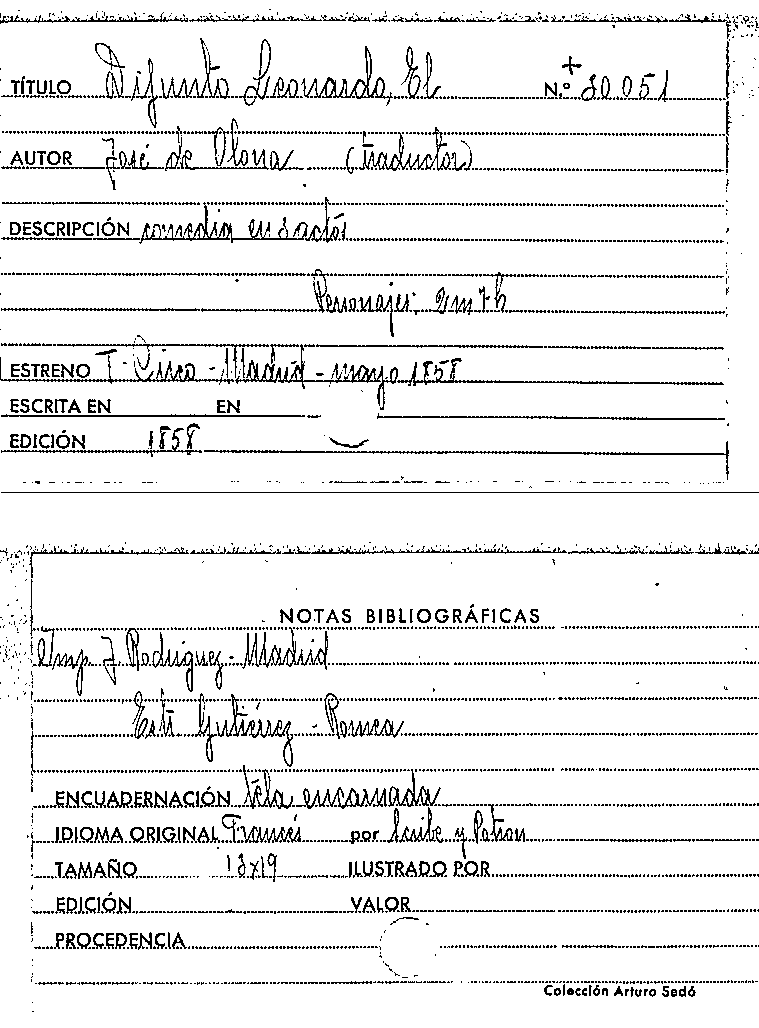 TÍTULO Difunto Leonardo, El N.º + 80.051
AUTOR José de Olona (traductor)
DESCRIPCIÓN comedia en 3 actos
Personajes: 2m 7h
ESTRENO T. Circo - Madrid - mayo 1858
ESCRITA EN EN
EDICIÓN 1858
NOTAS BIBLIOGRÁFICAS
Imp. J. Rodriguez - Madrid
Estr. Gutiérrez - Romea
ENCUADERNACIÓN tela encarnada
IDIOMA ORIGINAL Francés por Scribe y Potron
TAMAÑO 13x19 ILUSTRADO POR
EDICIÓN VALOR
PROCEDENCIA
Colección Arturo Sedó